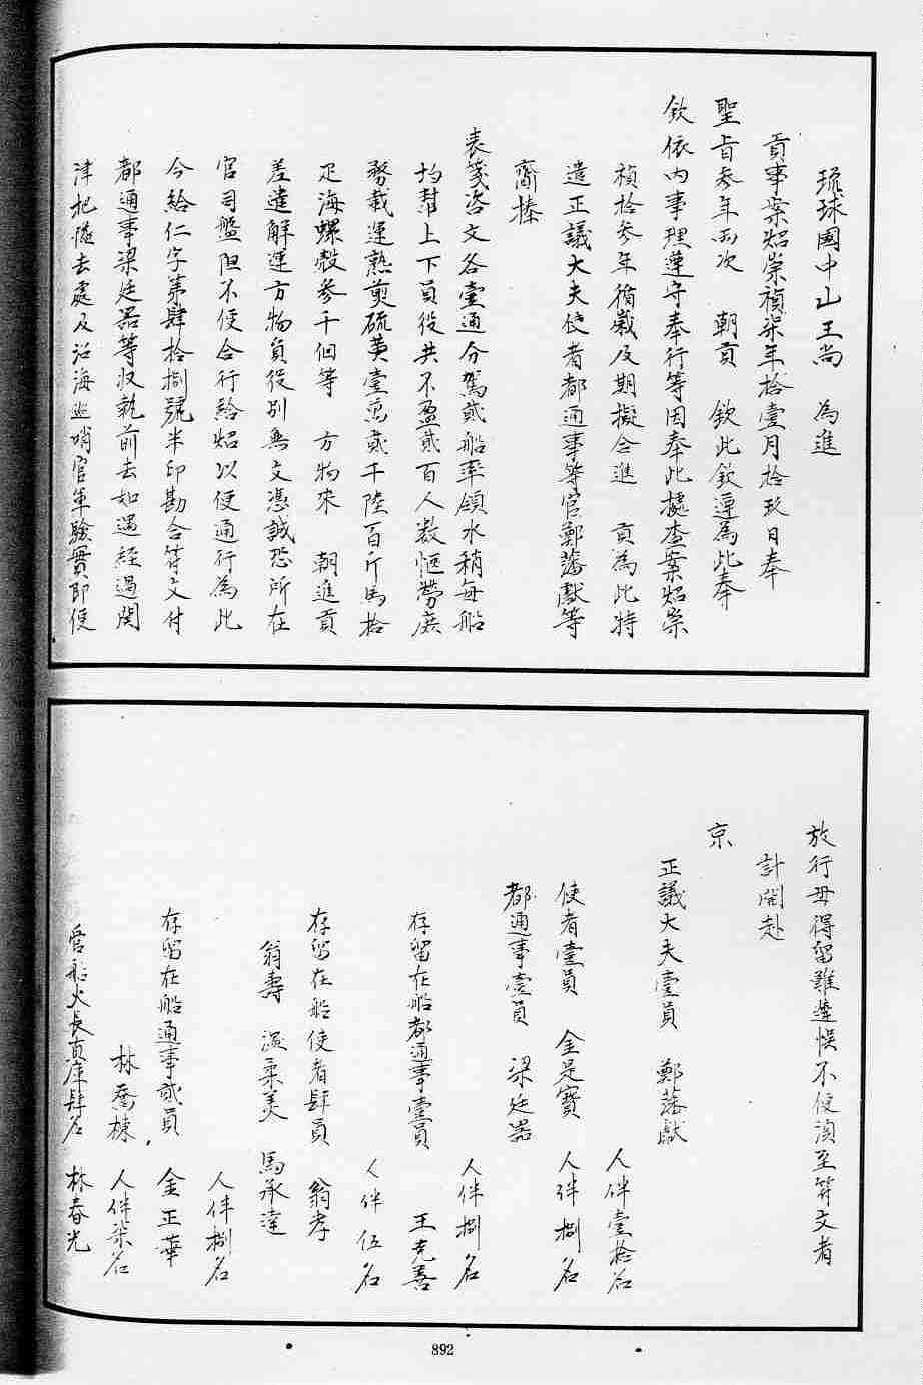 琉球國中山王尚　為進
貢事案炤崇禎柒年拾壹月拾玖日奉
聖旨參年兩次　朝貢　欽此欽遵為此奉
欽依內事理遵守奉行等因奉此據查案炤崇
禎拾參年循歲及期擬合進　貢為此特
遣正議大夫使者都通事等官鄭藩獻等
齎捧
表箋咨文各壹通分駕貳船率領水稍每船
均幫上下員役共不盈貳百人數恆勞庶
務載運熟煎硫黃壹萬貳千陸百斤馬拾
疋海螺殼參千個等　方物來　朝進貢
差遣解運方物員役別無文憑誠恐所在
官司盤阻不便合行給炤以便通行為此
今給仁字第肆拾捌號半印勘合符文付
都通事梁廷器等收執前去如遇經過關
津把隘去處及沿海巡哨官軍驗實即便
放行毋得留難遲悞不便須至符文者
計開赴
京
正議大夫壹員　鄭藩獻
人伴壹拾名
使者壹員　金是寶　人伴捌名
都通事壹員　梁廷器
人伴捌名
存留在船都通事壹員　王克善
人伴伍名
存留在船使者肆員　翁孝
翁壽　溫柔美　馬承達
人伴捌名
存留在船通事貳員　金正華
林喬棟　人伴柒名
管船火長直庫肆名　林春光
892